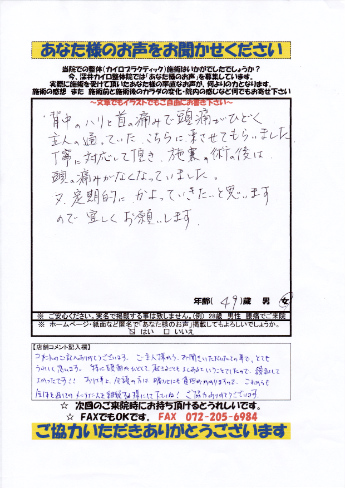 あなた様のお声をお聞かせください
当院での整体(カイロプラクティック)施術はいかがでしたでしょうか?
今、深井カイロ整体院では「あなた様のお声」を募集しています。
実際に施術を受けて頂いたあなた様の率直なお声が、何よりの力となります。
施術の感想 また 施術前と施術後のカラダの変化・院内の感じなど何でもお寄せ下さい
～文章でもイラストでもご自由にお書き下さい～
背中のハリと首の痛みで頭痛がひどく
主人の通っていた こちらに来させてもらいました
丁寧に対応して頂き、施術の後は
頭の痛みがなくなっていました。
又、定期的に かよっていきたいと思います
ので 宜しく お願いします。
年齢( 49 )歳 男 女
※ ご安心ください。実名で掲載する事は致しません。(例) 28歳 男性 腰痛でご来院
※ ホームページ・紙面など匿名で「あなた様のお声」掲載してもよろしいでしょうか。
☑ はい □ いいえ
【店舗コメント記入欄】
☆ 次回のご来院時にお持ち頂けるとうれしいです。
☆ FAXでもOKです。 FAX 072-205-6984
ご協力いただきありがとうございます